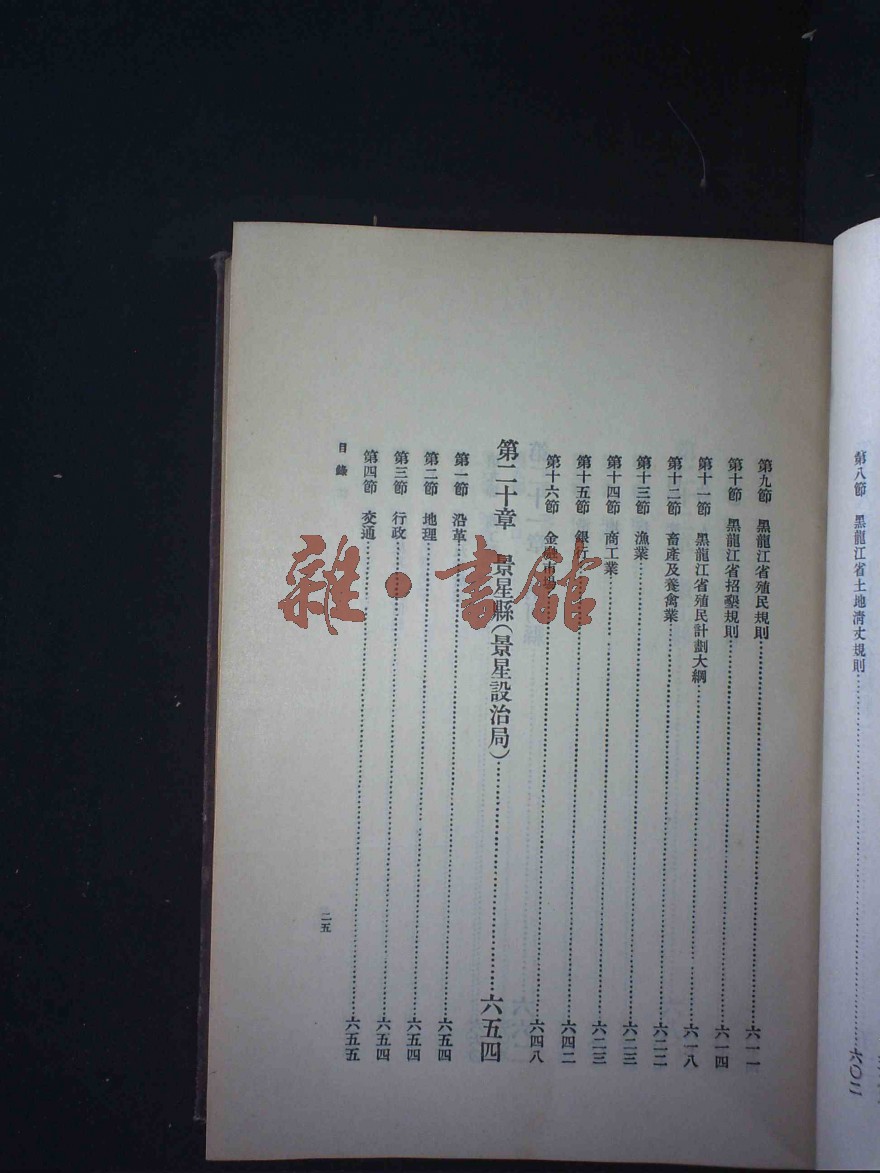 第八節　黑龍江省土地淸丈規則……六〇二
第九節　黑龍江省殖民規則……六一一
第十節　黑龍江省招墾規則……六一四
第十一節　黑龍江省殖民計劃大綱……六一八
第十二節　畜產及養禽業……六二二
第十三節　漁業……六二三
第十四節　商工業……六二三
第十五節　銀行……六四二
第十六節　金融市場……六四八
第二十章　景星縣（景星設治局）……六五四
第一節　沿革……六五四
第二節　地理……六五四
第三節　行政……六五四
第四節　交通……六五五
目錄
二五
雜·書館